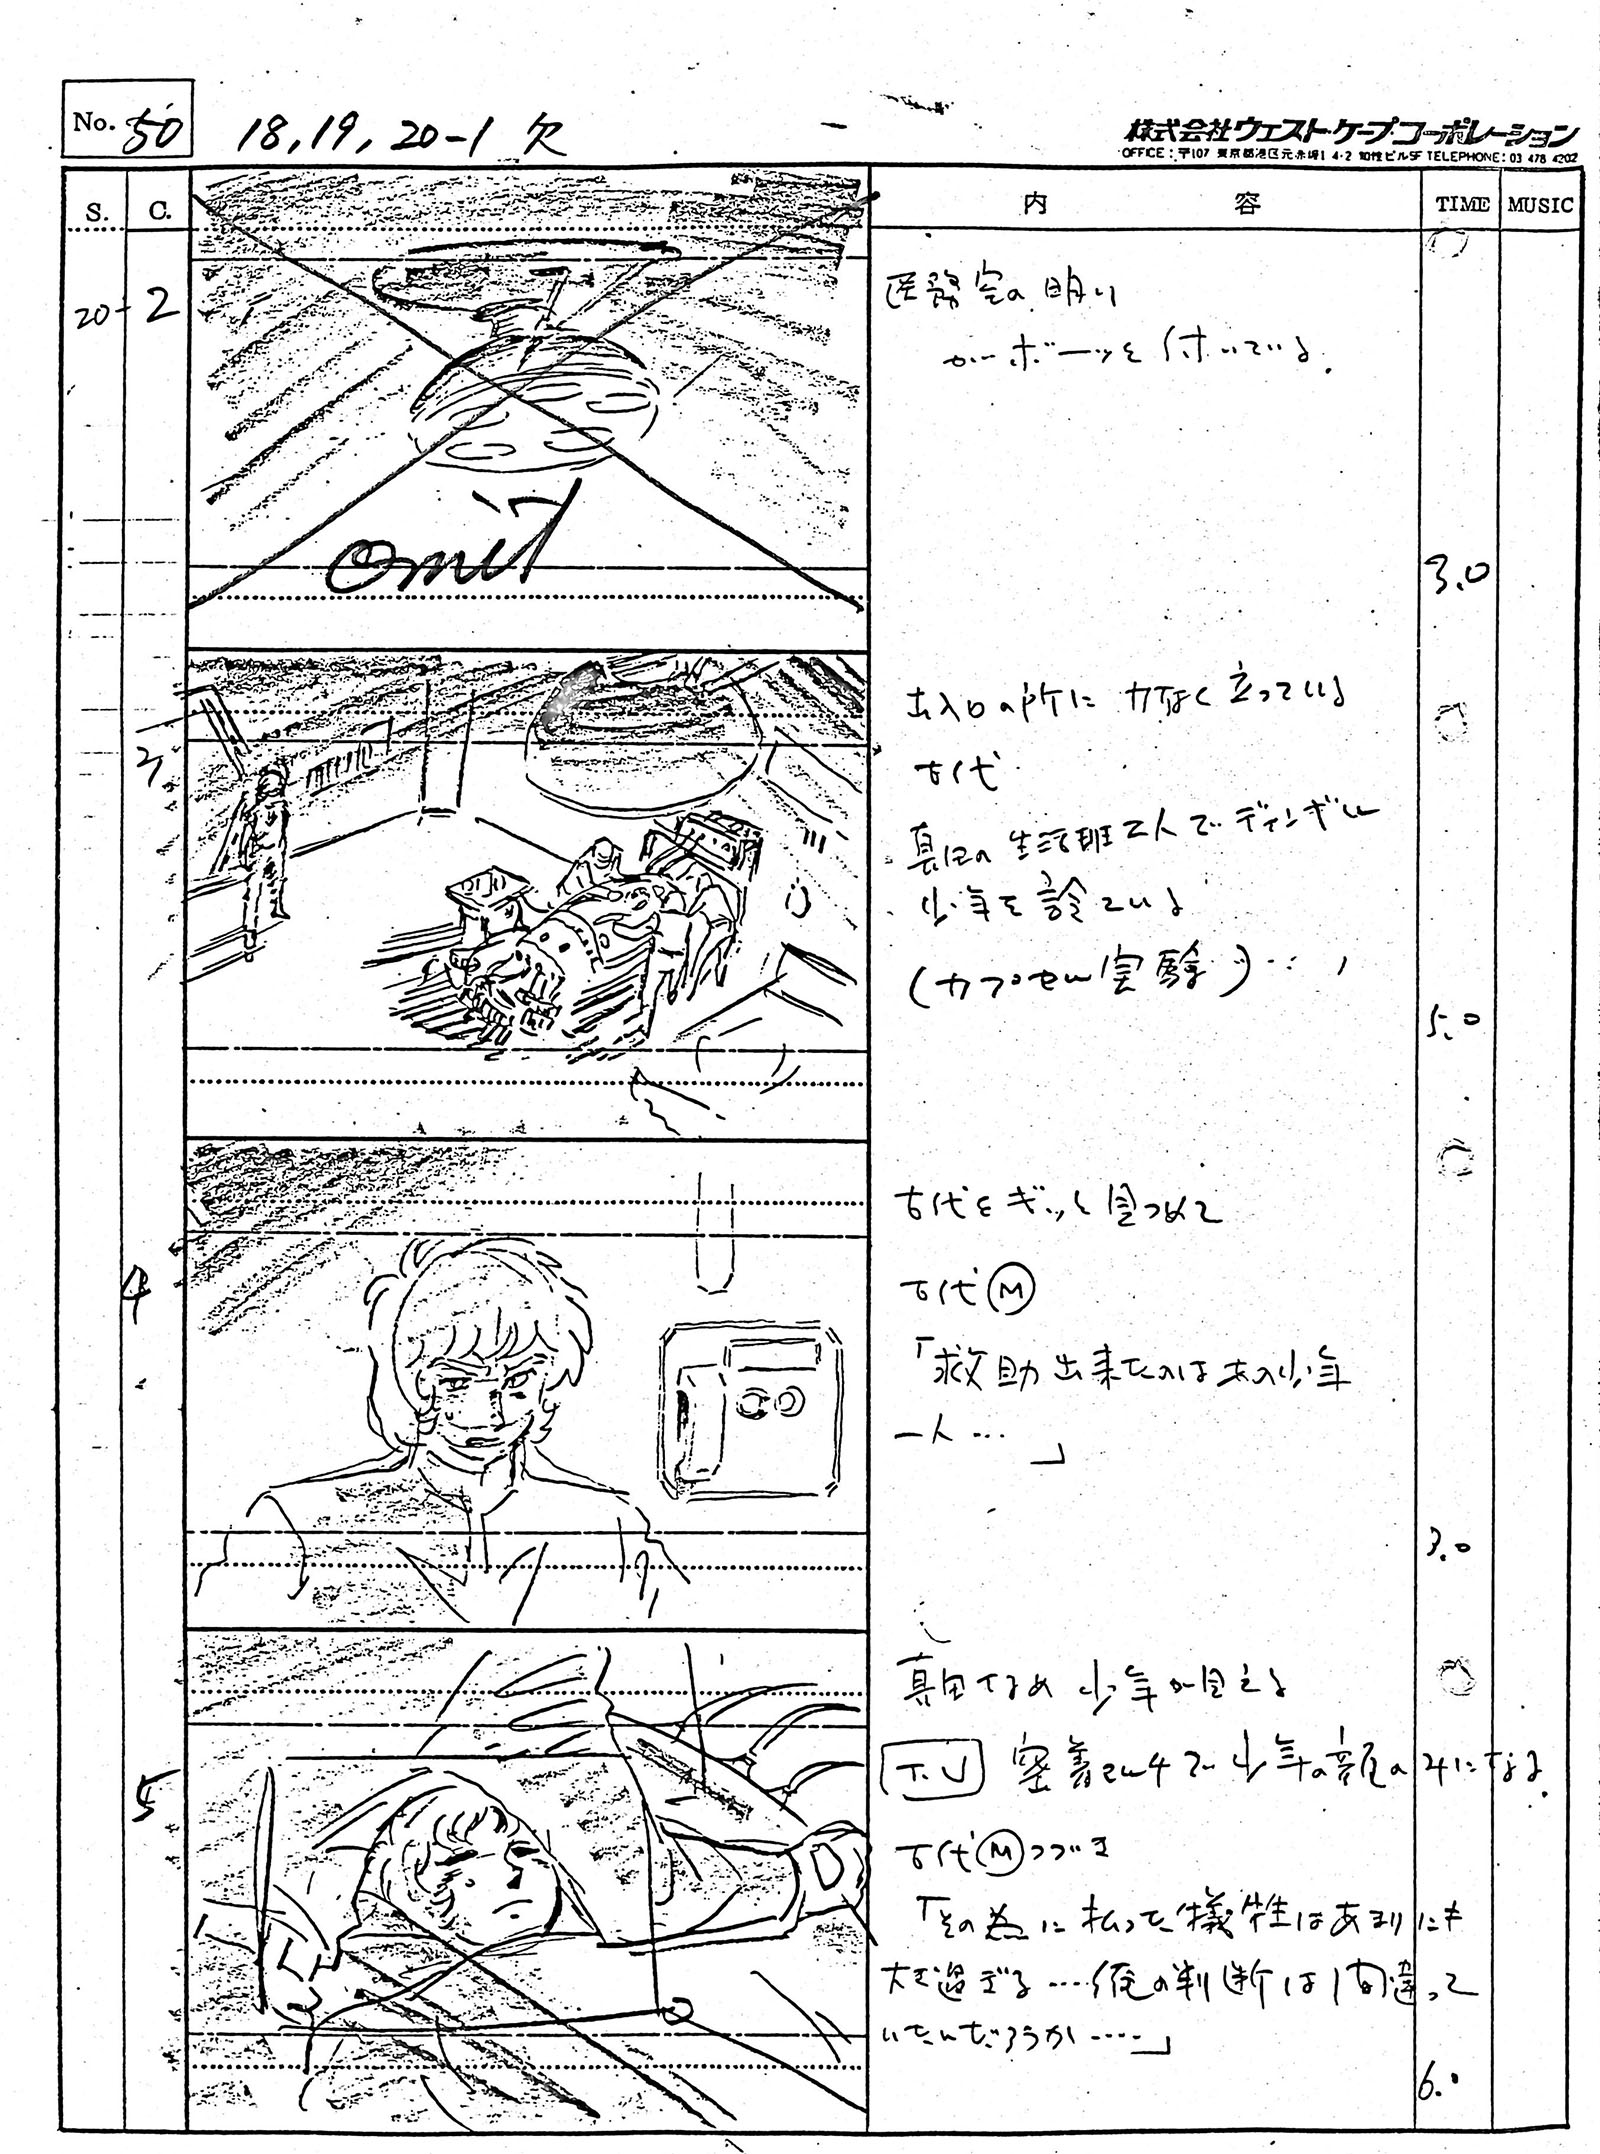 No. 50
18, 19, 20-1 欠
株式会社ウェスト・ケープ・コーポレーション
OFFICE : 〒107 東京都港区元赤坂1 4-2 TELEPHONE: 03 478 4202
S. C. 内容 TIME MUSIC
20-2
医務室の明り
がボーッと付いている.
omit
3.0
3
出入口の所に力なく立っている
古代
真田の生活班二人でディンギル
少年を診ている
(カプセル実験)…
5.0
4
古代をギッと見つめて
古代Ⓜ
「救助出来たのはあの少年
一人…」
3.0
5
真田なめ少年が見える
T.U 密着マルチで少年の顔のみになる.
古代Ⓜつづき
「その為に払った犠牲はあまりにも
大き過ぎる……俺の判断は間違って
いたんだろうか……」
6.0